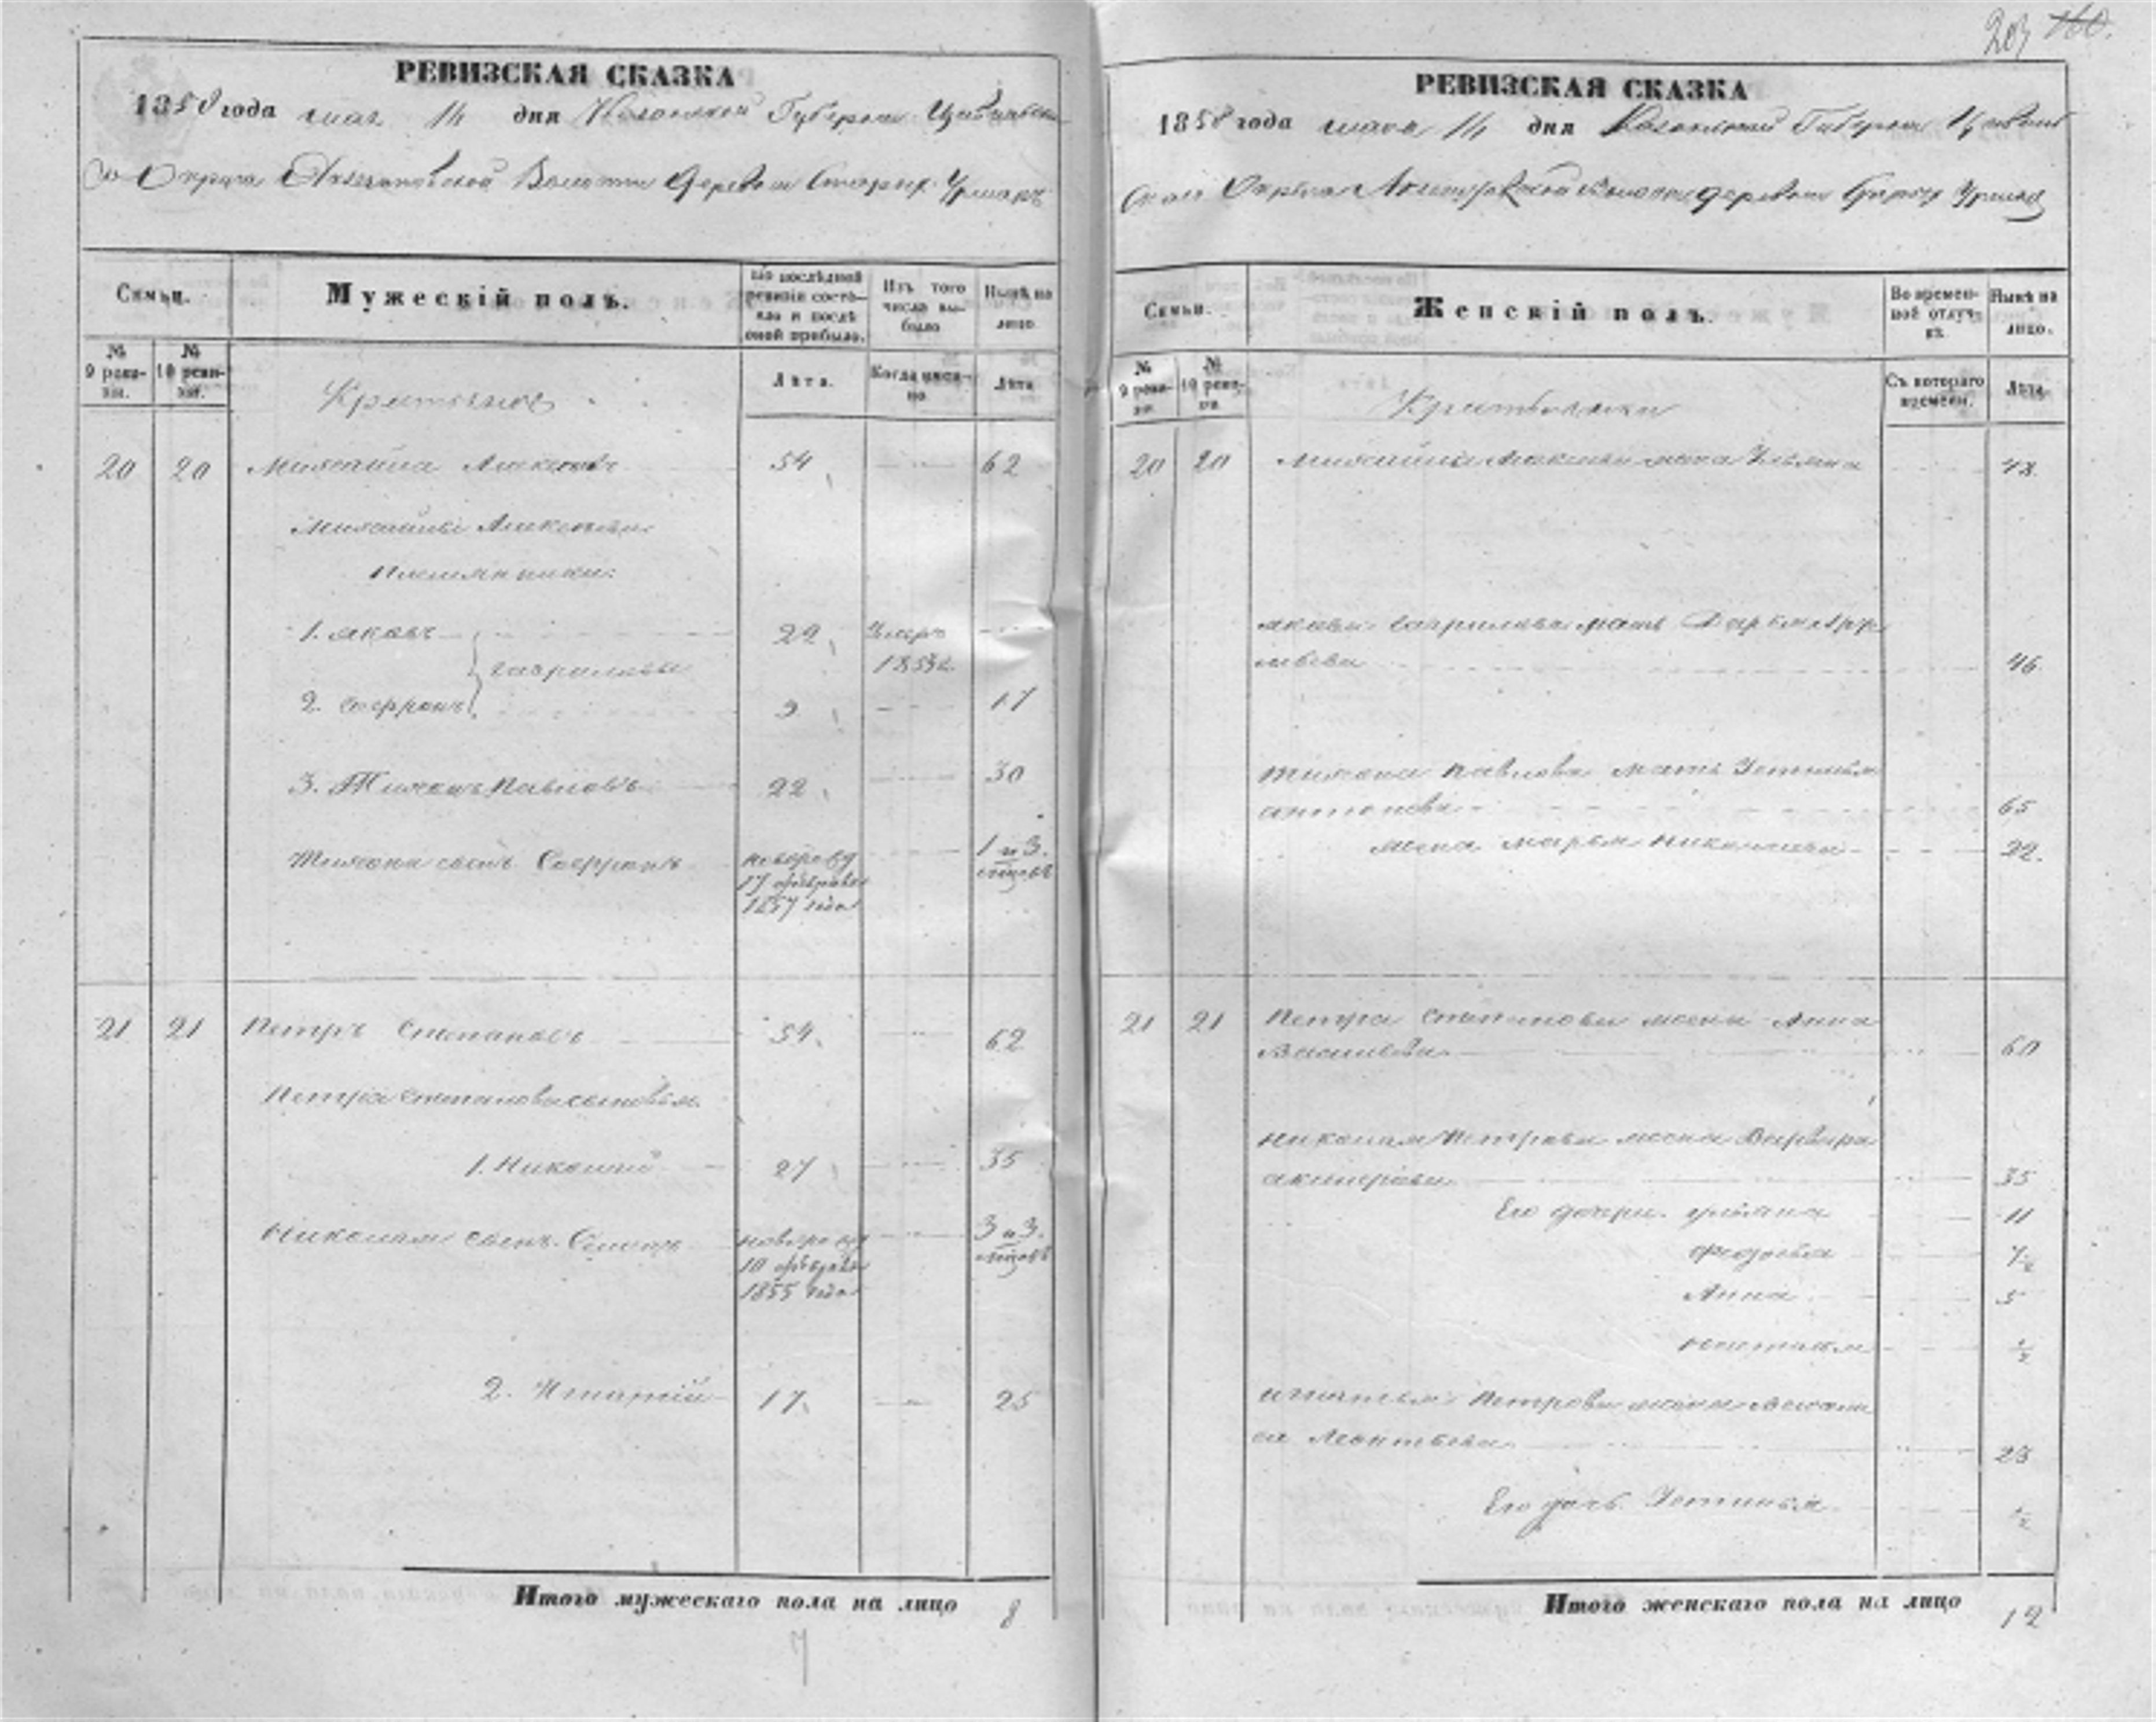 203 160.
РЕВИЗСКАЯ СКАЗКА
1858 года мая 14 дня Казанской Губернии Цивильска
го Округа Волости Деревни Старых Урмаръ
Семьи.
Мужескій полъ.
По послѣдней ревизіи состояло и послѣ оной прибыло.
Изъ того числа выбыло
Нынѣ на лицо.
№ 9 ревизіи.
№ 10 ревизіи.
Лѣта.
Когда именно.
Лѣта
20 20 Михайла Алексѣевъ 54 62
Михайлы Алексѣева
Племянники:
1. Яковъ 22 Умеръ
Гавриловы 1853
2. Софронъ 9 17
3. Тихонъ Павловъ 22 30
Тихона сынъ Софронъ новорожд 1 и 3.
17 февраля мѣсяцъ
1857 года
21 21 Петръ Степановъ 54 62
Петра Степанова сыновья
1. Николай 27 35
Николая сынъ новорожд 3 и 3.
10 февраля мѣсяцъ
1855 года
2. Игнатій 17 25
Итого мужескаго пола на лицо 8
7
РЕВИЗСКАЯ СКАЗКА
1858 года мая 14 дня Казанской Губернии Цивиль
скаго Округа Волости деревни Старых Урмар
Семьи.
Женскій полъ.
Во временной отлучкѣ.
Нынѣ на лицо.
№ 9 ревизіи.
№ 10 ревизіи.
Съ котораго времени.
Лѣта.
20 20 Михайлы Алексѣева жена Ульяна 48
Якова Гаврилова мать Дарья
46
Тихона Павлова мать Устинья
антонова 65
жена Марья Николаева 22.
21 21 Петра Степанова жена Анна
Васильева 60
Николая Петрова жена Варвара
35
Его дочери. Ульяна 11
Федосья 7½
Анна 5
Наталья ½
Игнатья Петрова жена
Леонтьева 23
Его дочь Устинья ½
Итого женскаго пола на лицо 12